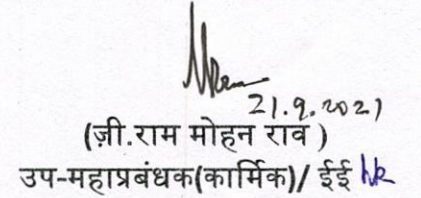 21.9.2021
(ज़ी.राम मोहन राव )
उप-महाप्रबंधक(कार्मिक)/ ईई